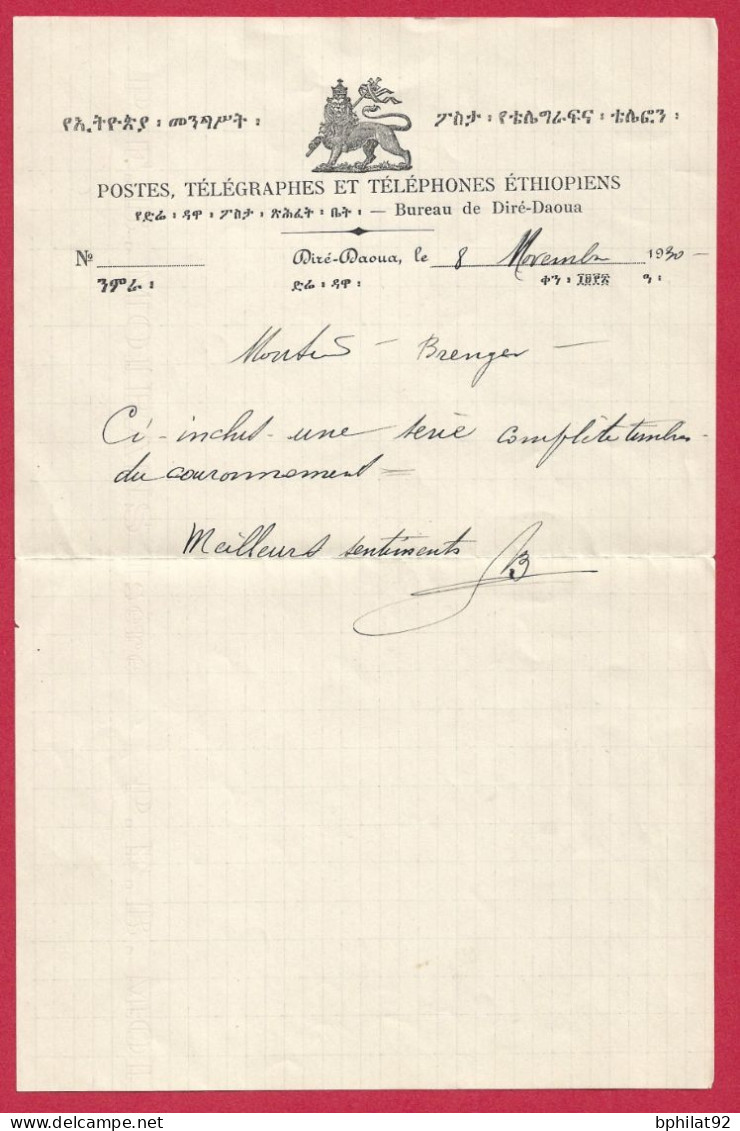 የኢትዮጵያ ፡ መንግሥት ፡ ፖስታ ፡ የቴሌግራፍና ፡ ቴሌፎን ፡
POSTES, TÉLÉGRAPHES ET TÉLÉPHONES ÉTHIOPIENS
የድሬ ፡ ዳዋ ፡ ፖስታ ፡ ጽሕፈት ፡ ቤት ፡ — Bureau de Diré-Daoua
№ Diré-Daoua, le 8 Novembre 1930 -
ንምራ ፡ ድሬ ፡ ዳዋ ፡ ቀን ፡ ዓ ፡
Brenger -
Ci - inclus - une série complète timbres -
du couronnement =
Meilleurs sentiments
B
bphilat92